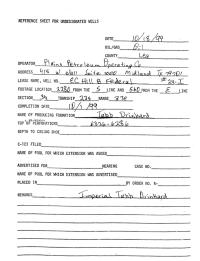 REFERENCE SHEET FOR UNDESIGNATED WELLS
DATE 10/18/99
OIL/GAS
COUNTY Lea
OPERATOR Plains Petroleum Operating Co
ADDRESS 415 W Wall Suite 1000 Midland Tx 79701
LEASE NAME, WELL NO. EC Hill B Federal
FOOTAGE LOCATION FROM THE S LINE AND FROM THE E LINE
SECTION TOWNSHIP 23S RANGE 37E
COMPLETION DATE
NAME OF PRODUCING FORMATION Tubb Drinkard
TOP OF PERFORATIONS
DEPTH TO CASING SHOE
C-123 FILED
NAME OF POOL FOR WHICH EXTENSION WAS ASKED
ADVERTISED FOR HEARING CASE NO.
NAME OF POOL FOR WHICH EXTENSION WAS ADVERTISED
PLACED IN BY ORDER NO. R-
REMARKS Imperial Tubb Drinkard